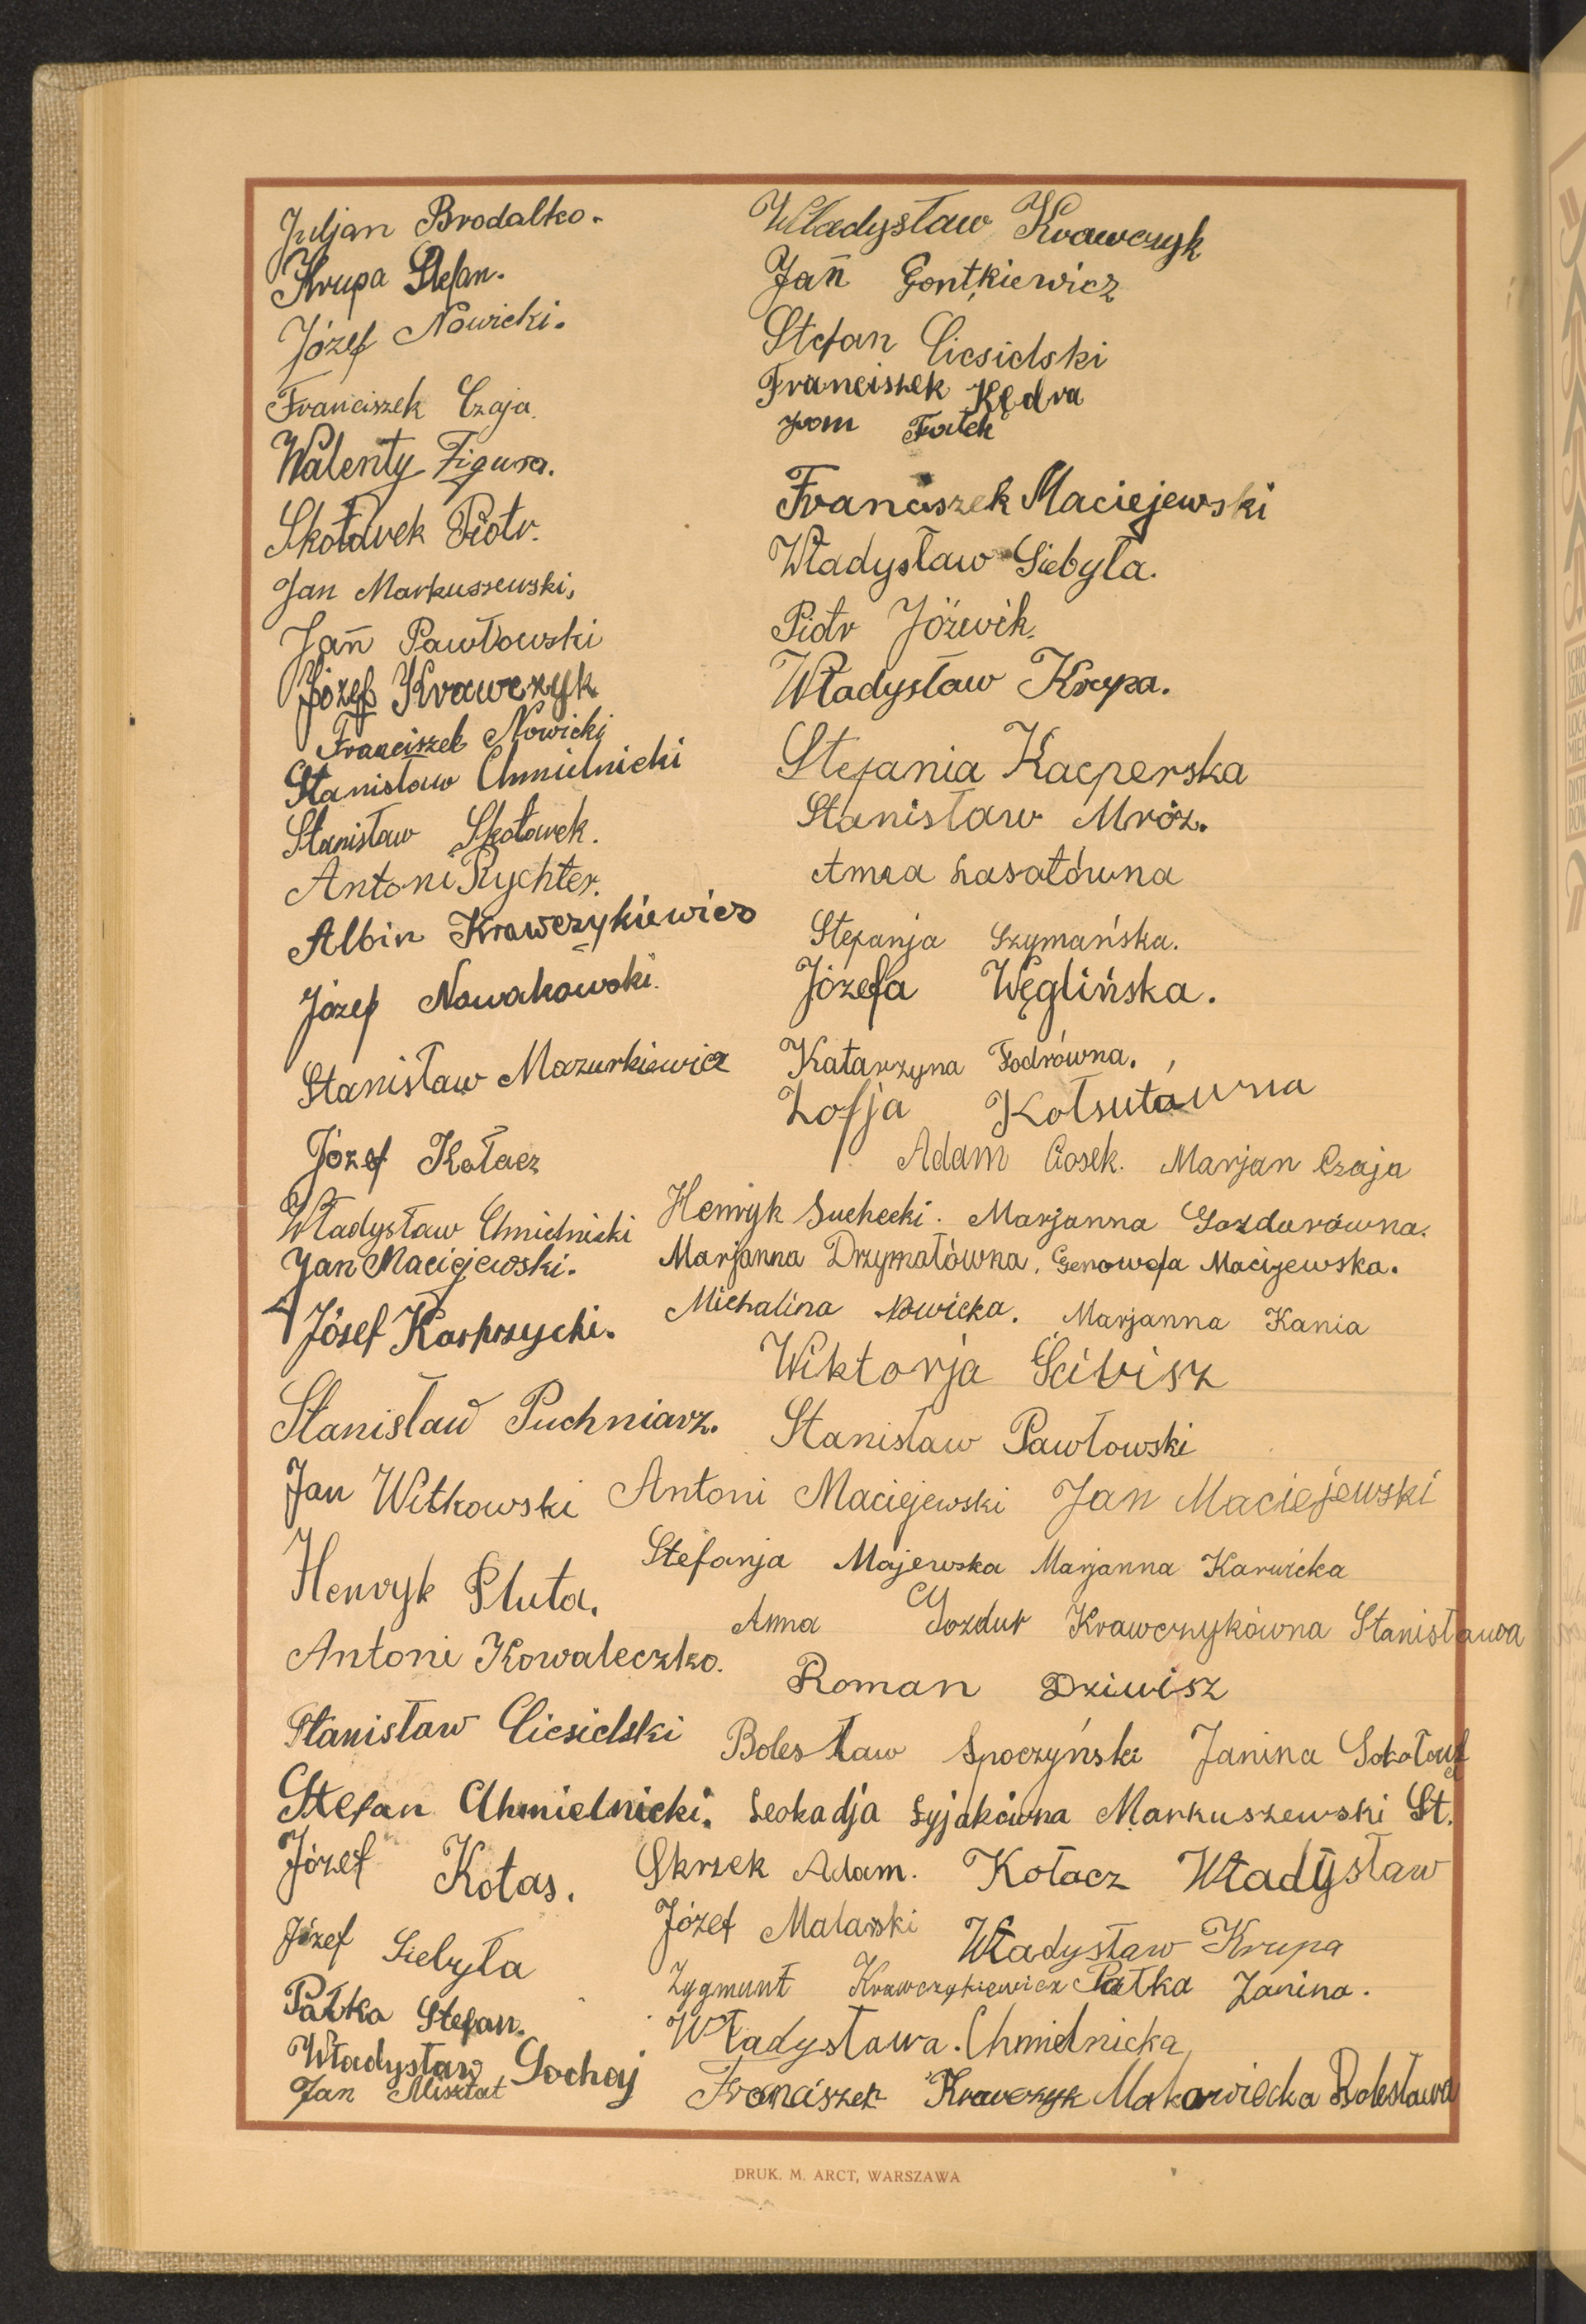 Juljan Brodalko.
Krupa Stefan.
Józef Nowicki.
Franciszek Czaja.
Walenty Figura.
Skołdrek Piotr.
Jan Markuszewski,
Jan Pawłowski
Józef Krawczyk
Franciszek Nowicki
Stanisław Chmielnicki
Stanisław Skołowek.
Antoni Rychter.
Albin Krawczykiewicz
Józef Nowakowski.
Stanisław Mazurkiewicz
Józef Kołacz
Władysław Chmielnicki
Jan Maciejewski.
Józef Kasprzycki.
Stanisław Puchniarz.
Jan Witkowski
Henryk Pluta.
Antoni Kowaleczko.
Stanisław Ciesielski
Stefan Chmielnicki.
Józef Kotas.
Józef Siebyła
Pałka Stefan.
Władysław Sochaj
Jan Misztat
Władysław Krawczyk
Jan Gontkiewicz
Stefan Ciesielski
Franciszek Kędra
Jan Fatek
Franciszek Maciejewski
Władysław Siebyła.
Piotr Józwik.
Władysław Krupa.
Stefania Kacperska
Stanisław Mróz.
Anna Lasotówna
Stefanja Szymańska.
Józefa Węglińska.
Katarzyna Fodrówna.
Zofja Kołsutówna
Adam Ciosek. Marjan Czaja
Henryk Suchecki. Marjanna Gozdurówna.
Marjanna Drzymałówna, Genowefa Maciejewska.
Michalina Nowicka. Marjanna Kania
Wiktorja Ścibisz
Stanisław Pawłowski
Antoni Maciejewski Jan Maciejewski
Stefanja Majewska Marjanna Karwicka
Anna Gozdur Krawczykówna Stanisława
Roman Dziwisz
Bolesław Spoczyński Janina
Leokadja Syjakówna Markuszewski St.
Skrzek Adam. Kołacz Władysław
Józef Malarski Władysław Krupa
Zygmunt Krawczykiewicz Pałka Janina.
Władysława Chmielnicka
Franciszek Krawczyk Makowiecka Bolesława
DRUK. M. ARCT, WARSZAWA